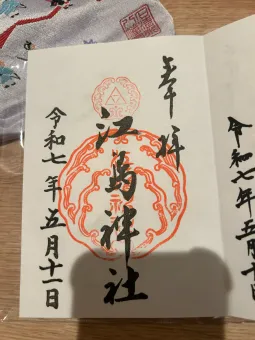 奉拝
江島神社
令和七年五月十一日
令和七年五月十